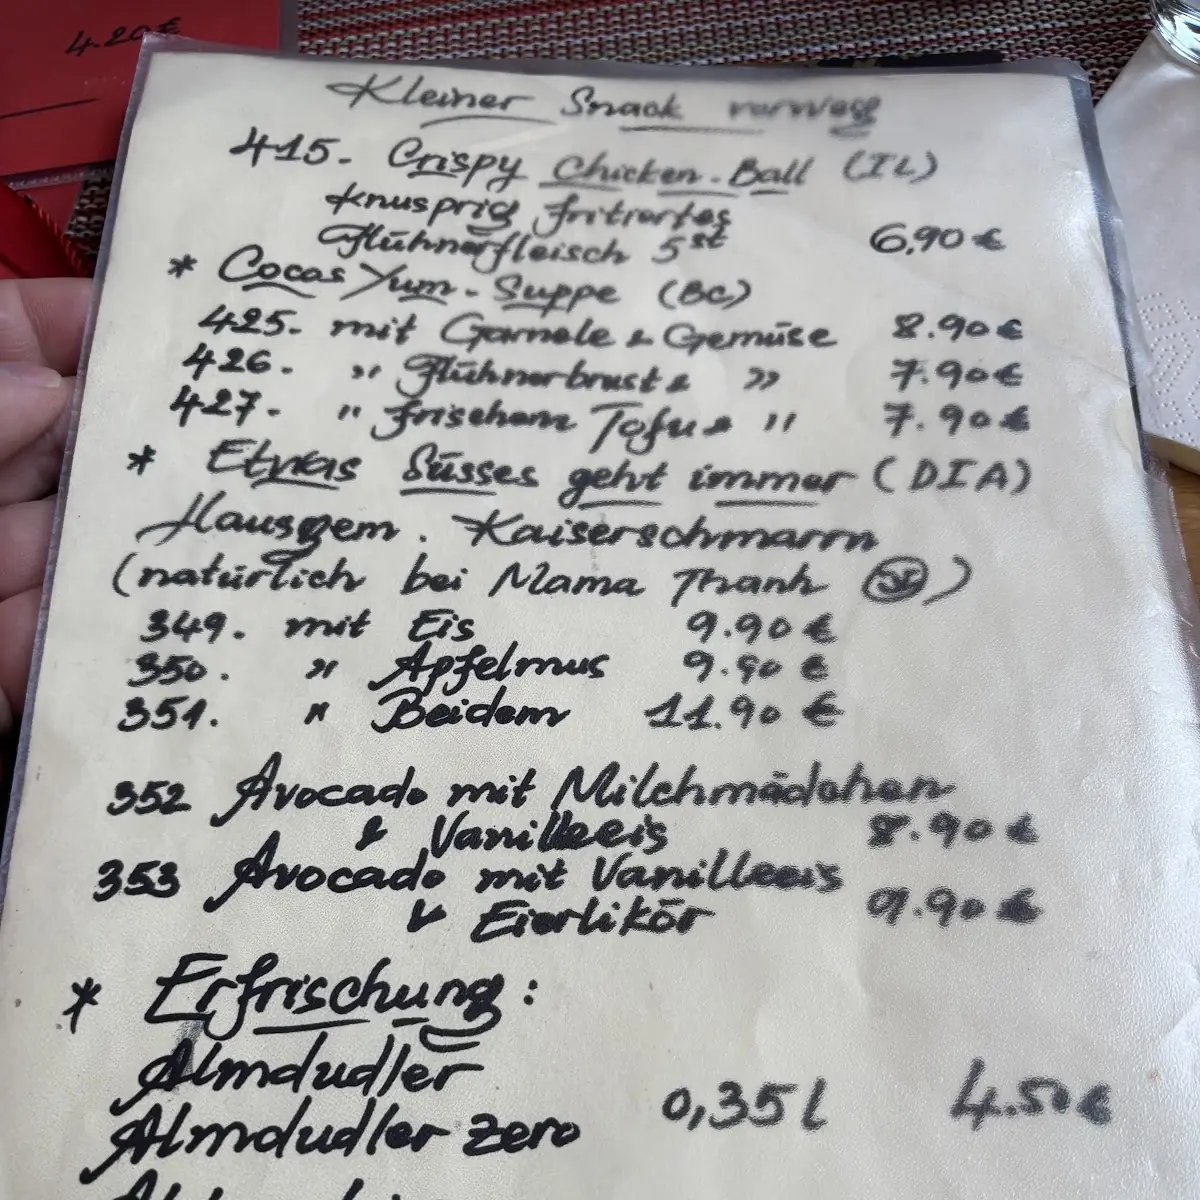 4.20€
Kleiner Snack vorweg
415. Crispy Chicken-Ball (IL)
Knusprig fritiertes
Hühnerfleisch 5st 6,90 €
* Cocos Yum-Suppe (BC)
425. mit Garnele & Gemüse 8.90€
426. " Hühnerbrust & " 7.90€
427. " frischem Tofu & " 7.90€
* Etwas Süsses geht immer (DIA)
Hausgem. Kaiserschmarrn
(natürlich bei Mama Thanh )
349. mit Eis 9.90 €
350. " Apfelmus 9.90 €
351. " Beidem 11.90 €
352 Avocado mit Milchmädchen
& Vanilleeis 8.90 €
353 Avocado mit Vanilleeis
& Eierlikör 9.90 €
* Erfrischung:
Almdudler
Almdudler Zero 0,35l 4.50€